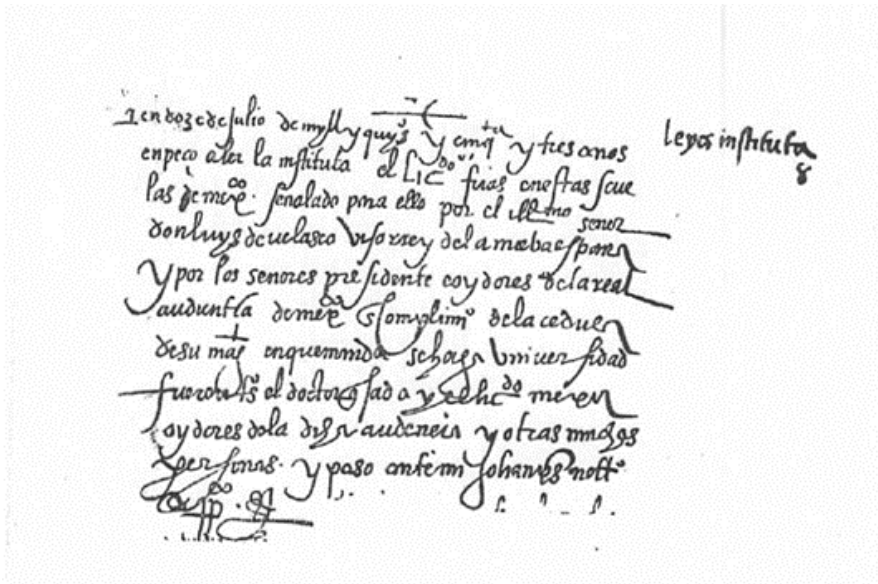 en doze de Julio de myll y quys y cinqta y tres anos
enpeço a ler la instituta el Licdo frias en estas scue
las de mexco. senalado para ello por el illmo senor
don luys de velasco visorrey de la nueba españa
y por los senores presidente e oydores de la real
audiençia de mexco en complimito de la cedula
de su mag en que manda se haga universidad
fueron ts el doctor quesada y el licdo
oydores de la dicha audencia y otras muchas
personas. y paso ante mi Johanes
leyes instituta
8